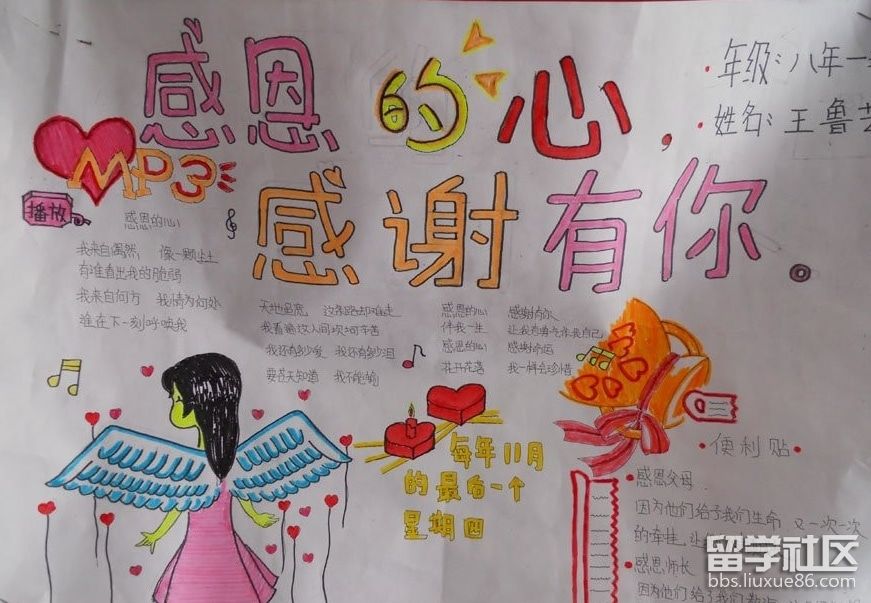 感恩的心，
感谢有你。
年级：八年一
姓名：王鲁艺
MP3
播放
感恩的心
我来自偶然， 像一颗尘土
有谁看出我的脆弱
我来自何方 我情归何处
谁在下一刻呼唤我
天地虽宽， 这条路却难走
我看遍这人间坎坷辛苦
我还有多少爱 我还有多少泪
要苍天知道 我不认输
感恩的心 感谢有你
伴我一生 让我有勇气作我自己
感恩的心 感谢命运
花开花落 我一样会珍惜
每年11月
的最后一个
星期四
便利贴
感恩父母
因为他们给予我们生命 又一次一次
的牵挂，让
感恩师长
因为他们给了我们教诲
留学社区
bbs.liuxue86.com